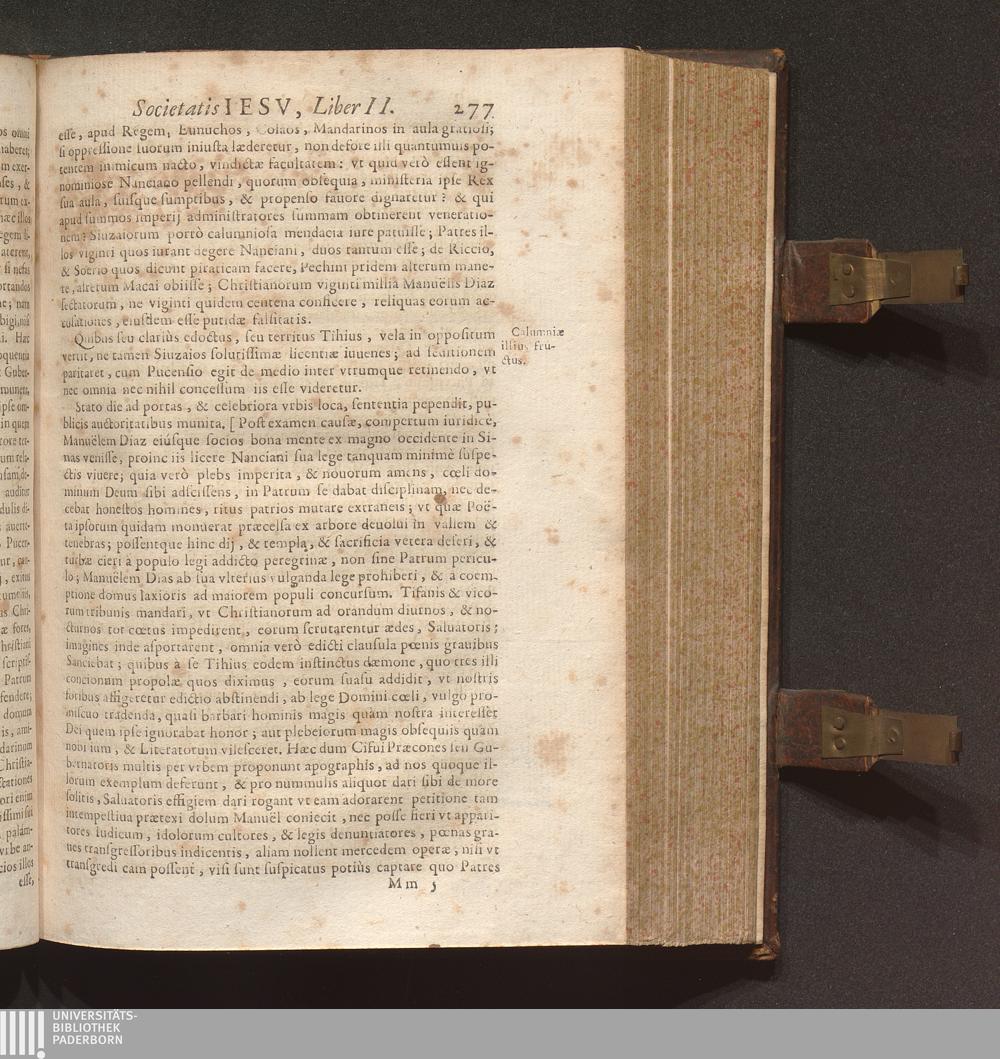 Societatis IESV, Liber II. 277
esse, apud Regem, Eunuchos, Colaos, Mandarinos in aula gratiosi;
si oppressione suorum iniusta læderetur, non defore illi quantumuis po-
tentem inimicum nacto, vindictæ facultatem: vt quid verò essent ig-
nominiose Nanciano pellendi, quorum obsequia, ministeria ipse Rex
sua aula, suisque sumptibus, & propenso fauore dignaretur? & qui
apud summos imperij administratores summam obtinerent veneratio-
nem? Siuzaiorum porrò calumniosa mendacia iure patuisse; Patres il-
los viginti quos iurant degere Nanciani, duos tantum esse; de Riccio,
& Soerio quos dicunt piraticam facere, Pechini pridem alterum mane-
re, alterum Macai obiisse; Christianorum viginti millia Manuelis Diaz
sectatorum, ne viginti quidem centena conficere, reliquas eorum ac-
cusationes, eiusdem esse putidæ falsitatis.
Quibus seu clariùs edoctus, seu territus Tihius, vela in oppositum
vertit, ne tamen Siuzaios solutissimæ licentiæ iuuenes; ad seditionem
paritaret, cum Pucensio egit de medio inter vtrumque retinendo, vt
nec omnia nec nihil concessum iis esse videretur.
Calumniæ
illius fru-
ctus.
Stato die ad portas, & celebriora vrbis loca, sententia pependit, pu-
blicis auctoritatibus munita. [Post examen causæ, compertum iuridicè,
Manuëlem Diaz eiúsque socios bona mente ex magno occidente in Si-
nas venisse, proinc iis licere Nanciani sua lege tanquam minimè suspe-
ctis viuere; quia verò plebs imperita, & nouorum amens, cœli do-
minum Deum sibi adscissens, in Patrum se dabat disciplinam, nec de-
cebat honestos homines, ritus patrios mutare extraneis; vt quæ Poë-
ta ipsorum quidam monuerat præcelsa ex arbore deuolui in vallem &
tenebras; possentque hinc dij, & templa, & sacrificia vetera deseri, &
turbæ cieri à populo legi addicto peregrinæ, non sine Patrum pericu-
lo; Manuëlem Dias ab sua vlterius vulganda lege prohiberi, & à coem-
ptione domus laxioris ad maiorem populi concursum. Tifanis & vico-
rum tribunis mandari, vt Christianorum ad orandum diurnos, & no-
cturnos tot cœtus impedirent, eorum scrutarentur ædes, Saluatoris;
imagines inde asportarent, omnia verò edicti clausula pœnis grauibus
Sanciebat; quibus à se Tihius eodem instinctus dæmone, quo tres illi
concionum propolæ quos diximus, eorum suasu addidit, vt nostris
foribus affigeretur edictio abstinendi, ab lege Domini cœli, vulgo pro-
miscuo tradenda, quasi barbari hominis magis quàm nostra interesset
Dei quem ipse ignorabat honor; aut plebeiorum magis obsequiis quàm
nobilium, & Literatorum vilesceret. Hæc dum Cifui Præcones seu Gu-
bernatoris multis per vrbem proponunt apographis, ad nos quoque il-
lorum exemplum deferunt, & pro nummulis aliquot dari sibi de more
solitis, Saluatoris effigiem dari rogant vt eam adorarent petitione tam
intempestiua prætexi dolum Manuël coniecit, nec posse fieri vt appari-
tores Iudicum, idolorum cultores, & legis denuntiatores, pœnas gra-
ues transgressoribus indicentis, aliam nollent mercedem operæ; nisi vt
transgredi eam possent, visi sunt suspicatus potiùs captare quo Patres
Mm 5
UNIVERSITÄTS-
BIBLIOTHEK
PADERBORN